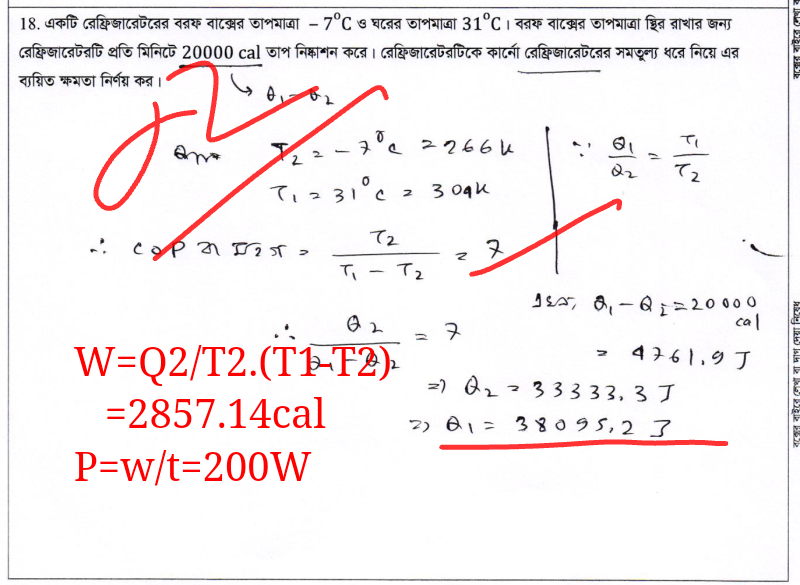 18. একটি রেফ্রিজারেটরের বরফ বাক্সের তাপমাত্রা – 7⁰C ও ঘরের তাপমাত্রা 31⁰C। বরফ বাক্সের তাপমাত্রা স্থির রাখার জন্য
রেফ্রিজারেটরটি প্রতি মিনিটে 20000 cal তাপ নিষ্কাশন করে। রেফ্রিজারেটরটিকে কার্নো রেফ্রিজারেটরের সমতুল্য ধরে নিয়ে এর
ব্যয়িত ক্ষমতা নির্ণয় কর।
θ₁ – θ₂
T₂ = – 7⁰C = 266K
T₁ = 31⁰C = 304K
∵ θ₁/θ₂ = T₁/T₂
∴ COP = T₂/(T₁ – T₂) = 7
θ₁ – θ₂ = 20000 cal
= 4761.9 J
∴ θ₂/(θ₁ – θ₂) = 7
⇒ θ₂ = 33333.3 J
⇒ θ₁ = 38095.2 J
W=Q2/T2.(T1-T2)
=2857.14cal
P=w/t=200W
বক্সের বাইরে লেখা বা দাগ দেয়া নিষেধ